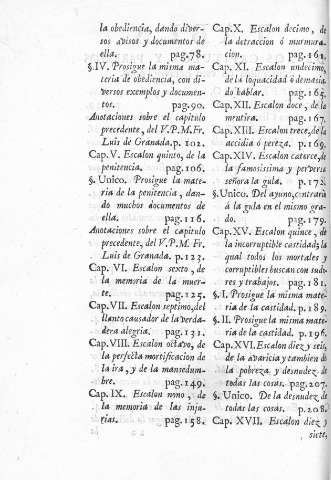 la obediencia, dando diver-
sos avisos y documentos de
ella. pag.78.
§.IV. Prosigue la misma ma-
teria de obediencia, con di-
versos exemplos y documen-
tos. pag.90.
Anotaciones sobre el capitulo
precedente, del V.P.M.Fr.
Luis de Granada. p. 102.
Cap. V. Escalon quinto, de la
penitencia. pag.106.
§. Unico. Prosigue la mate-
ria de la penitencia, dan-
do muchos documentos de
ella. pag.116.
Anotaciones sobre el capitulo
precedente, del V. P. M. Fr.
Luis de Granada. p.123.
Cap. VI. Escalon sexto, de
la memoria de la muer-
te. pag.125.
Cap. VII. Escalon septimo, del
llanto causador de la verda-
dera alegria. pag.131.
Cap. VIII. Escalon octavo, de
la perfecta mortificacion de
la ira, y de la mansedum-
bre. pag.149.
Cap. IX. Escalon nono, de
la memoria de las inju-
rias. pag.158.
Cap. X. Escalon decimo, de
la detraccion ó murmura-
cion. pag.161.
Cap. XI. Escalon undecimo,
de la loquacidad ó demasia-
do hablar. pag.165.
Cap. XII. Escalon doce, de la
mentira. pag.167.
Cap. XIII. Escalon trece, de la
accidia ó pereza. p.169.
Cap. XIV. Escalon catorce, de
la famosissima y perversa
señora la gula. p.172.
§. Unico. Del ayuno, contrario
á la gula en el mismo gra-
do. pag.179.
Cap. XV. Escalon quince, de
la incorruptible castidad; la
qual todos los mortales y
corruptibles buscan con sudo-
res y trabajos. pag.181.
§. I. Prosigue la misma mate-
ria de la castidad. p.189.
§. II. Prosigue la misma mate-
ria de la castidad. p.196.
Cap. XVI. Escalon diez y seis,
de la avaricia y tambien de
la pobreza y desnudez de
todas las cosas. pag.207.
§. Unico. De la desnudez de
todas las cosas. p.208.
Cap. XVII. Escalon diez y
siete,